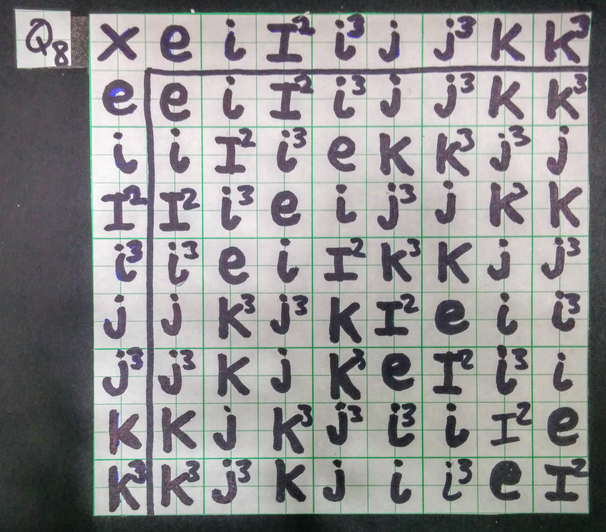 Q₈
× e i I² i³ j j³ K K³
e e i I² i³ j j³ K K³
i i I² i³ e K K³ j³ j
I² I² i³ e i j³ j K³ K
i³ i³ e i I² K³ K j j³
j j K³ j³ K I² e i i³
j³ j³ K j K³ e I² i³ i
K K j K³ j³ i³ i I² e
K³ K³ j³ K j i i³ e I²